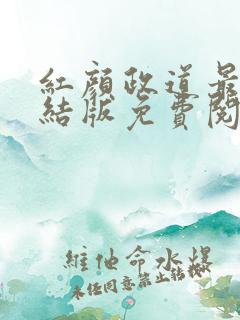 紅顏政道最
結版免費閱
維他命水爆
未經同意禁止轉載